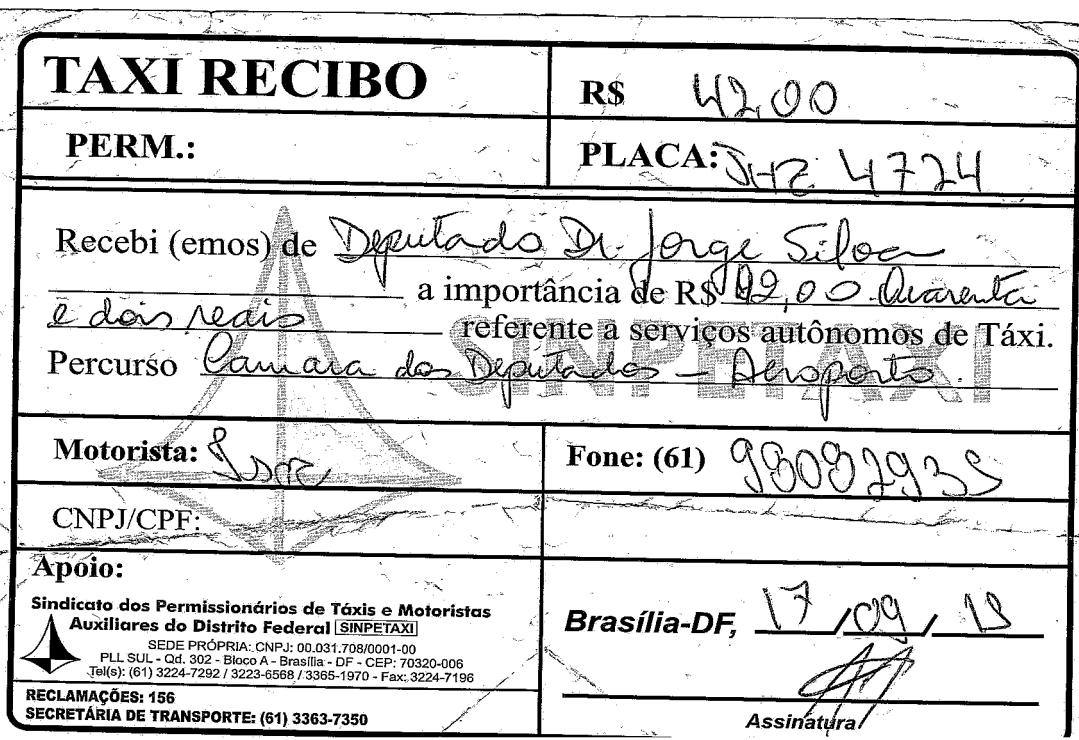 TAXI RECIBO
R$ 42,00
PERM.:
PLACA: JHZ 4724
Recebi (emos) de Deputado Dr. Jorge Silva
a importância de R$ 42,00. Quarenta
e dois reais referente a serviços autônomos de Táxi.
SINPETAXI
Percurso Camara dos Deputados - Aeroporto.
Motorista:
Fone: (61)
CNPJ/CPF:
Apoio:
Sindicato dos Permissionários de Táxis e Motoristas
Auxiliares do Distrito Federal SINPETAXI
SEDE PRÓPRIA: CNPJ: 00.031.708/0001-00
PLL SUL - Qd. 302 - Bloco A - Brasília - DF - CEP: 70320-006
Tel(s): (61) 3224-7292 / 3223-6568 / 3365-1970 - Fax: 3224-7196
RECLAMAÇÕES: 156
SECRETÁRIA DE TRANSPORTE: (61) 3363-7350
Brasília-DF, 17/09/
Assinatura